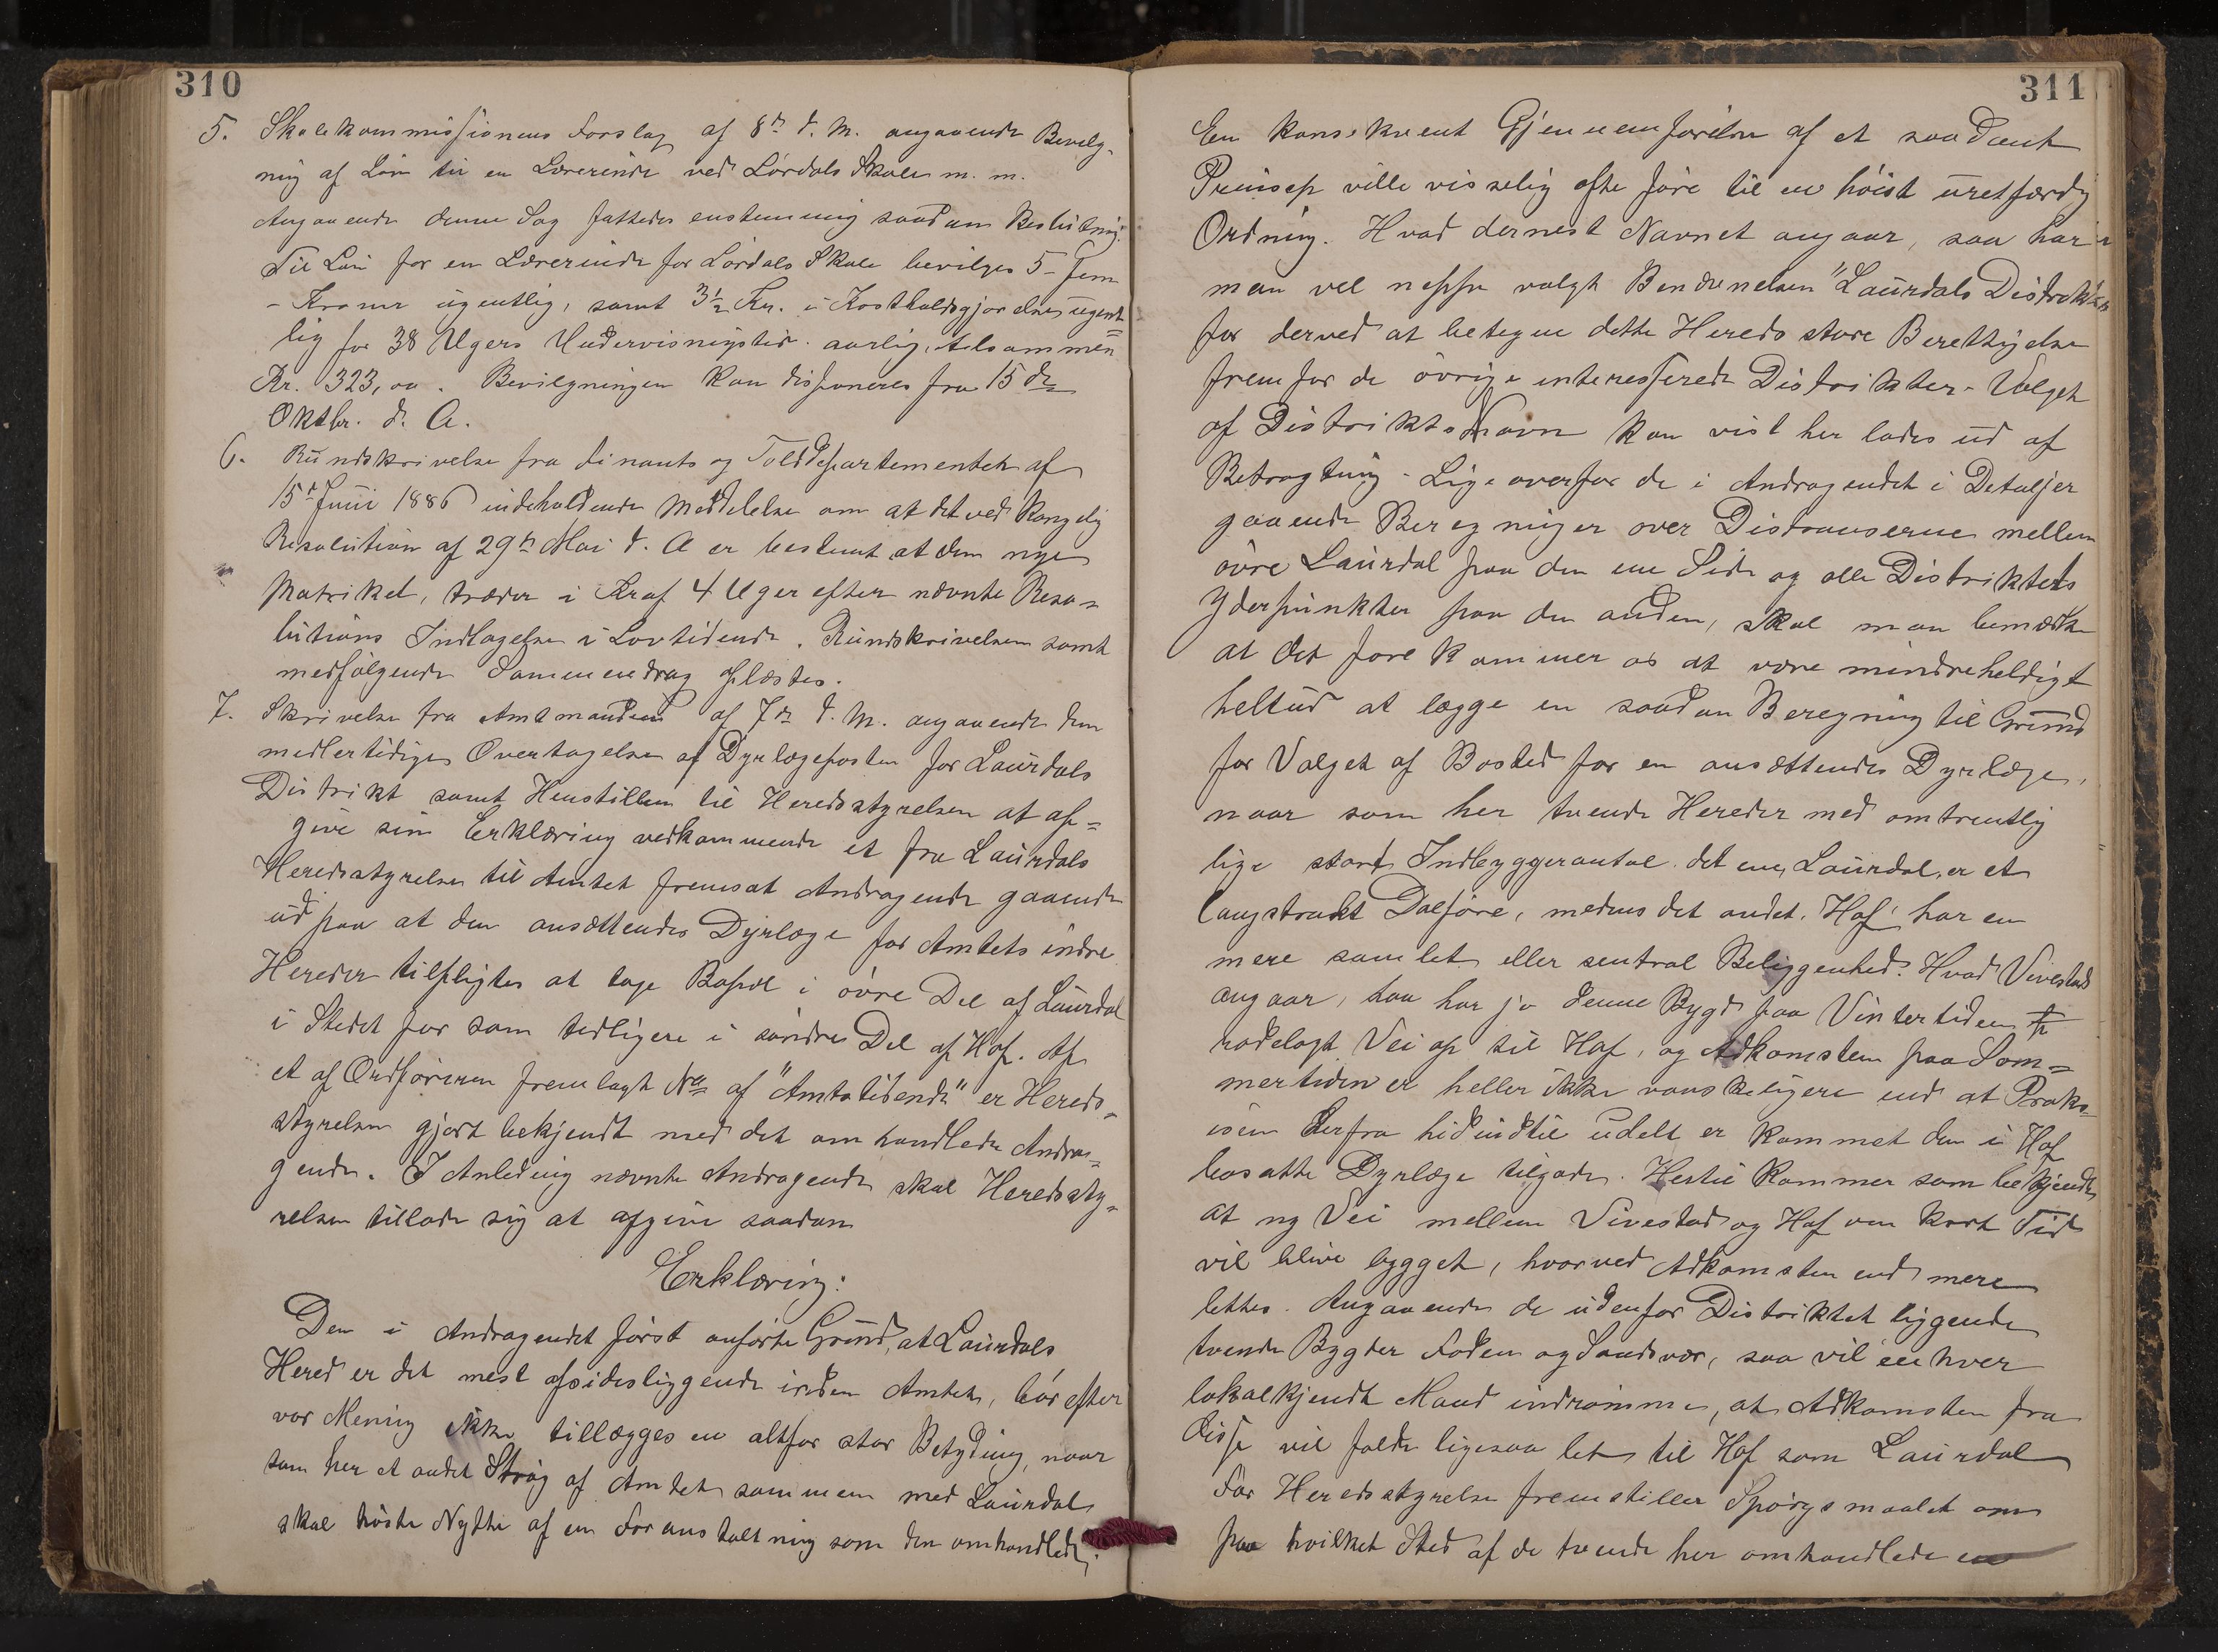 310
5. Skolekommissionens Forslag af 8de d. M. angaaende Bevilg-
ning af Løn til en Lærerinde ved Lørdals Skole m. m.
Angaaende denne Sag fattedes enstemmig saadan Beslutning:
Til Løn for en Lærerinde for Lørdals Skole bevilges 5 - Fem
- Kroner ugentlig, samt 3½ Kr. i Kostholdsgjørelse ugent=
lig for 38 Ugers Undervisningstid aarlig, tilsammen
Kr. 323,00. Bevilgningen kan disponeres fra 15de
Oktbr. d. A.
6. Rundskrivelse fra Finants og Told Departementet af
15de Juni 1886 indeholdende Meddelelse om at det ved Kongelig
Resolution af 29de Mai d. A er bestemt at den nye
Matrikel, træder i Kraf 4 Uger efter nævnte Reso=
lutions Indtagelse i Lovtidende. Rundskrivelsen samt
medfølgende Sammendrag oplæstes.
7. Skrivelse fra Amtmanden af 7de d. M. angaaende den
medlertidige Overtagelse af Dyrlægeposten for Laurdals
Distrikt samt Henstillen til Heredsstyrelsen at af=
give sin Erklæring vedkommende et fra Laurdals
Heredsstyrelse til Amtet fremsat Andragende gaaende
ud paa at den ansættendes Dyrlæge for Amtets indre
Hereder tilpligtes at tage Bopæl i øvre Del af Laurdal
i Stedet for som tidligere i søndre Del af Hof. Af
et af Ordføreren fremlagt No af "Amtstidende" er Hereds-
styrelsen gjort bekjendt med det omhandlede Andra=
gende. I Anledning nævnte Andragende skal Heredssty=
relsen tillade sig at afgive saadan
Erklæring:
Den i Andragendet først anførte Grund, at Laurdals
Hered er det mest afsidesliggende inden Amtet, bør efter
vor Mening ikke tillægges en altfor stor Betydning, naar
som her et andet Strøg af Amtet sammen med Laurdal
skal høste Nytte af en Foranstaltning som den omhandlede;
311
En konsekvent Gjennemførelse af et saadant
Prinsep ville visselig ofte føre til en høist uretfærdig
Ordning. Hvad dernest Navnet angaar, saa har
man vel neppe valgt Benævnelsen "Laurdals Distrikt"
for derved at betegne dette Hereds store Berettigelse
fremfor de øvrige interesserede Distrikter - Valget
af Distrikts Navn kan vist her lades ud af
Betragtning - Lige overfor de i Andragendet i Detaljer
gaaende Beregninger over Distanserne mellem
øvre Laurdal paa den ene Side og alle Distriktets
Yderpunkter paa den anden, skal man bemærke
at det forekommer os at være mindreheldigt
heltud at lægge en saadan Beregning til Grund
for Valget af Bosted for en ansættendes Dyrlæge,
naar som her tvende Hereder med omtrentlig
lige stort Indbyggerantal det ene, Laurdal, er et
langstrakt Dalføre, medens det andet, Hof, har en
mere samlet eller sentral Beliggenhed. Hvad Vivestad
angaar, saa har jo denne Bygd paa Vintertiden fr
rodelagt Vei op til Hof, og Adkomsten paa Som=
mertiden er heller ikke vanskeligere end at Praks-
isen derfra hidindtil udelt er kommet den i Hof
bosatte Dyrlæge tilgode. Hertil kommer som bekjendt,
at ny Vei mellem Vivestad og Hof om kort Tid
vil blive bygget, hvorved Adkomsten end mere
lettes. Angaaende de udenfor Distriktet liggende
tvende Bygder Foden og Sandsvær, saa vil enhver
lokalkjendt Mand indrømme, at Adkomsten fra
disse vil falde ligesaa let til Hof som Laurdal
Før Heredsstyrelse fremstiller Spørgsmaalet om
paa hvilket Sted af de tvende her omhandlede en